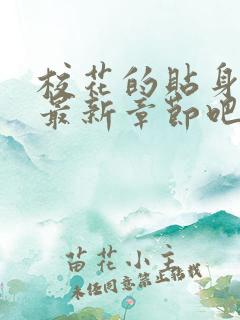 校花的贴身
最新章节吧
苗花小主
未经同意禁止转载